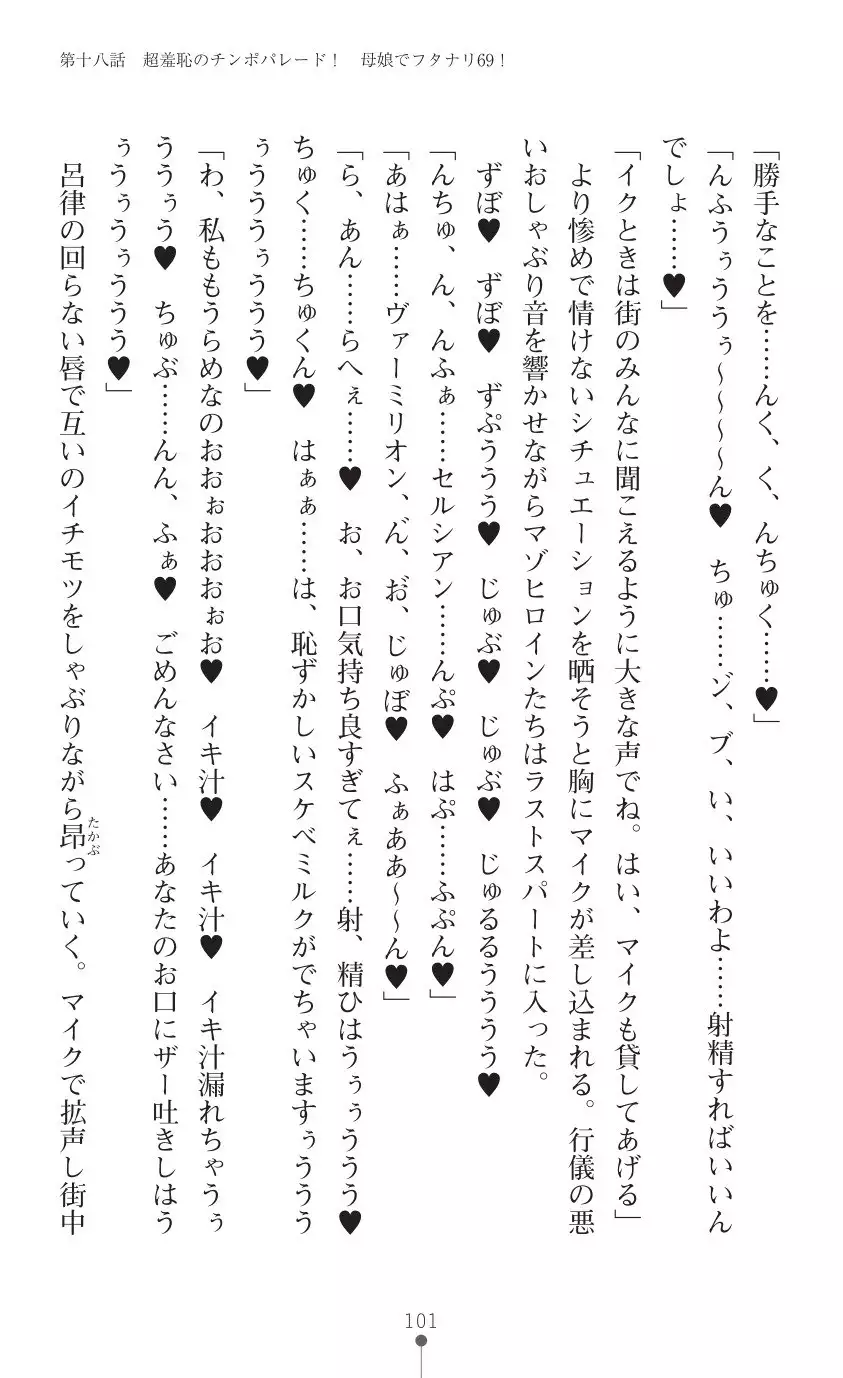 第十八話　超羞恥のチンポパレード！　母娘でフタナリ69！
「勝手なことを……んく、く、んちゅく……♥」
「んふうぅううぅ～～～～ん♥　ちゅ……ゾ、ブ、い、いいわよ……射精すればいいん
でしょ……♥」
「イクときは街のみんなに聞こえるように大きな声でね。はい、マイクも貸してあげる」
　より惨めで情けないシチュエーションを晒そうと胸にマイクが差し込まれる。行儀の悪
いおしゃぶり音を響かせながらマゾヒロインたちはラストスパートに入った。
　ずぼ♥　ずぼ♥　ずぷううう♥　じゅぶ♥　じゅぶ♥　じゅるるうううう♥
「んちゅ、ん、んふぁ……セルシアン……んぷ♥　はぷ……ふぷん♥」
「あはぁ……ヴァーミリオン、ん゛、お゛、じゅぼ♥　ふぁああ～～ん♥」
「ら、あん……らへぇ……♥　お、お口気持ち良すぎてぇ……射、精ひはうぅぅううう♥
ちゅく……ちゅくん♥　はぁぁ……は、恥ずかしいスケベミルクがでちゃいますぅううう
ぅうううぅううう♥」
「わ、私ももうらめなのおおぉおおおぉお♥　イキ汁♥　イキ汁♥　イキ汁漏れちゃうぅ
ううぅう♥　ちゅぶ……んん、ふぁ♥　ごめんなさい……あなたのお口にザー吐きしはう
ぅうぅうぅううう♥」
　呂律の回らない唇で互いのイチモツをしゃぶりながら昂たかぶっていく。マイクで拡声し街中
101